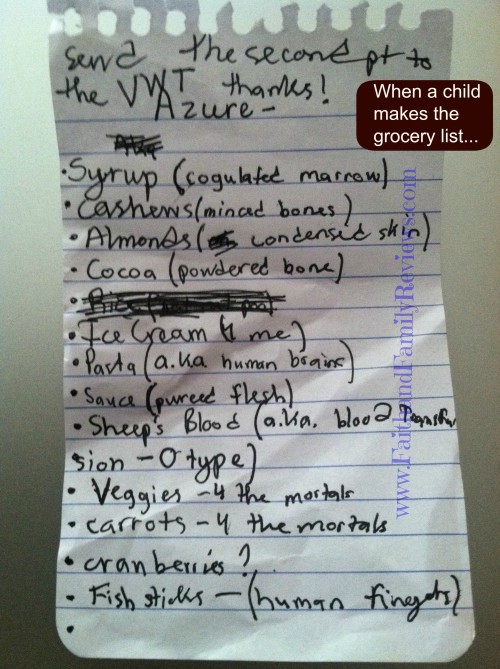 send the second pt to
the VWT thanks!
Azure -
When a child
makes the
grocery list...
• Syrup (cogulated marrow)
• Cashews (minced bones)
• Almonds ( condensed skin)
• Cocoa (powdered bone)
• Ice Cream (4 me)
• Pasta (a.k.a human brains)
• Sauce (pureed flesh)
• Sheep's Blood (a.k.a. blood transfu
sion - O type)
• Veggies - 4 the mortals
• carrots - 4 the mortals
• cranberries?
• Fish sticks - (human fingers)
•
www.FaithandFamilyReviews.com